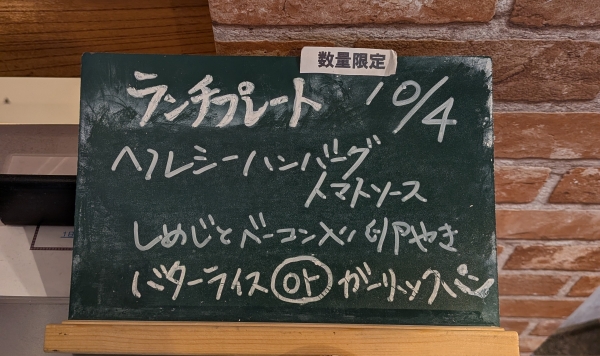 数量限定
ランチプレート 10/4
ヘルシーハンバーグ
トマトソース
しめじとベーコン入り卵やき
バターライス or ガーリックパン